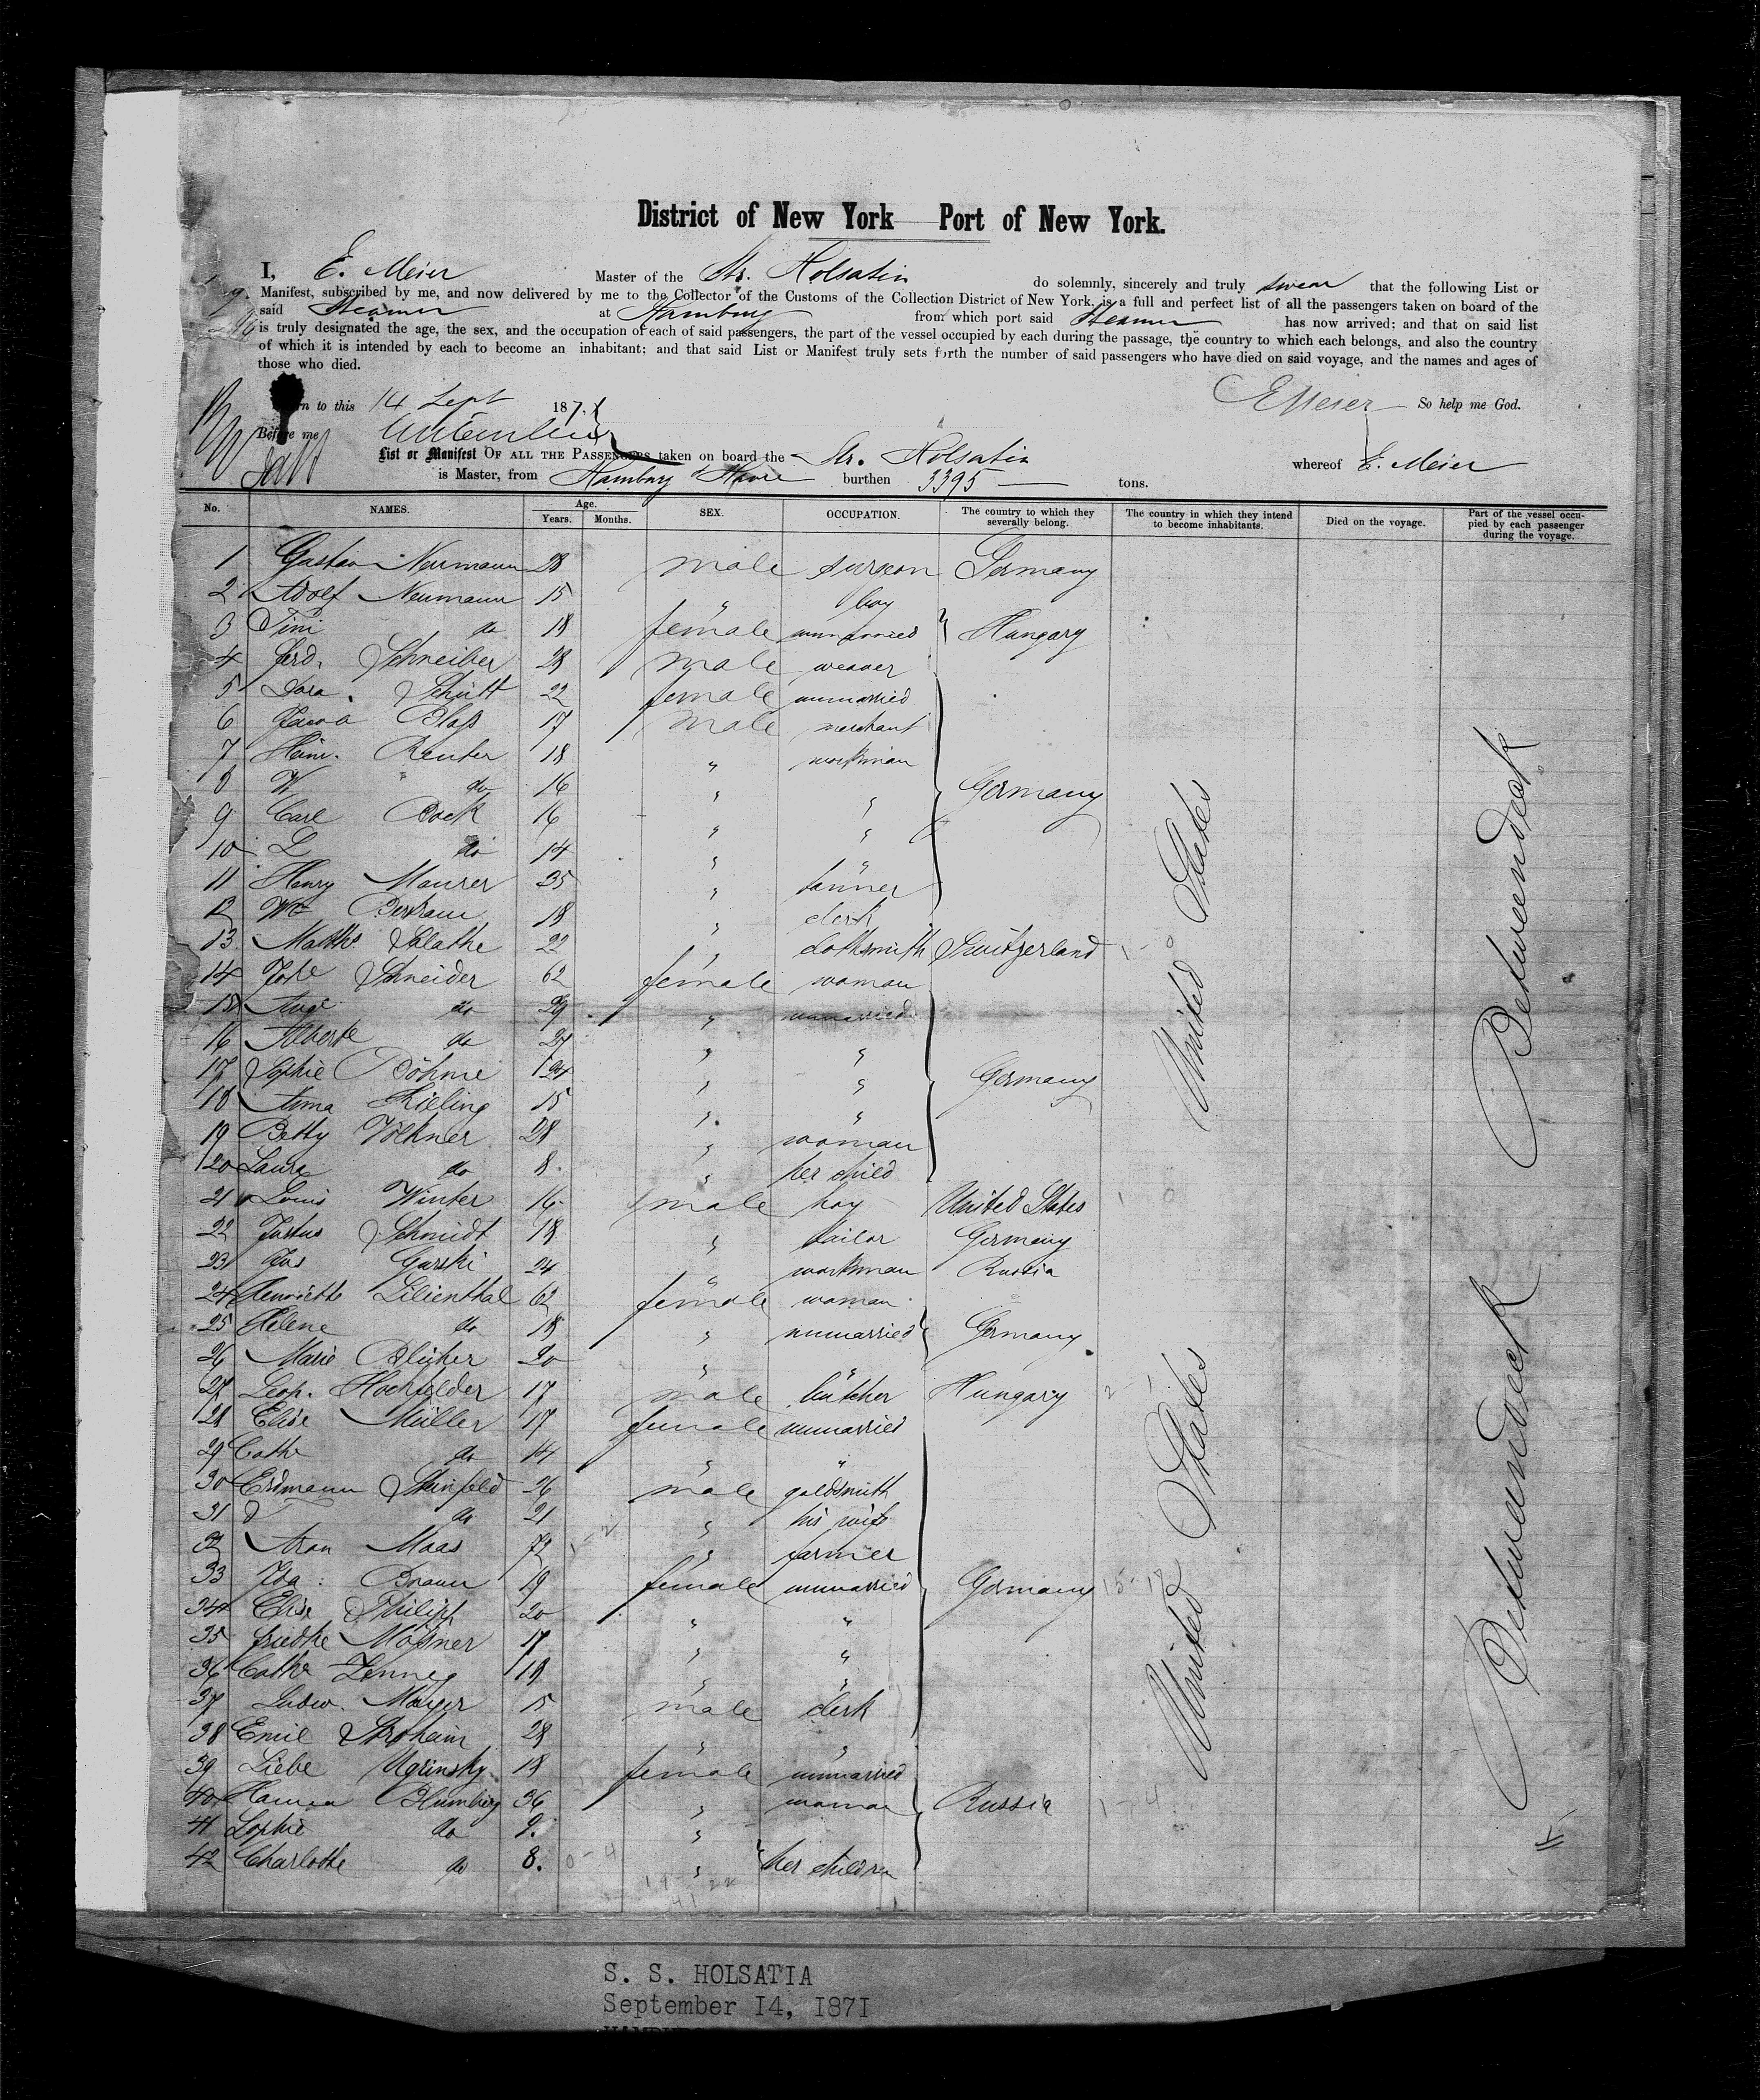 District of New York Port of New York.
I, E. Meier Master of the Str. Holsatia do solemnly, sincerely and truly swear that the following List or
Manifest, subscribed by me, and now delivered by me to the Collector of the Customs of the Collection District of New York, is a full and perfect list of all the passengers taken on board of the
said Steamer at Hamburg from which port said Steamer has now arrived: and that on said list
is truly designated the age, the sex, and the occupation of each of said passengers, the part of the vessel occupied by each during the passage, the country to which each belongs, and also the country
of which it is intended by each to become an inhabitant; and that said List or Manifest truly sets forth the number of said passengers who have died on said voyage, and the names and ages of
those who died.
to this 14 Sept 1871 EMeier So help me God.
Before me
List or Manifest OF ALL THE PASSENGERS taken on board the Str. Holsatia whereof E. Meier
is Master, from Hamburg & Havre burthen 3395 tons.
No. NAMES. Age. Years. Months. SEX. OCCUPATION. The country to which they severally belong. The country in which they intend to become inhabitants. Died on the voyage. Part of the vessel occupied by each passenger during the voyage.
1 Gustav Neumann 28 male surgeon Germany
2 Adolf Neumann 15 " boy
3 Tini do 18 female unmarried Hungary
4 Ferd. Schreiber 28 male weaver
5 Dora Schütt 22 female unmarried
6 Jacob Blaß 17 male merchant
7 Heinr. Reuter 18 " workman
8 W do 16 " " Germany
9 Carl Bock 16 " "
10 L do 14 " "
11 Henry Maurer 35 " tanner
12 Wm Bertram 18 " clerk
13 Matths Salathe 22 " clothsmith Switzerland
14 Schneider 62 female woman
15 Aug. do 29 " unmarried
16 Alberte do 27 " "
17 Sophie Böhme 24 " " Germany
18 Anna Kieling 15 " "
19 Betty 28 " woman
20 Laura do 8 " her child
21 Louis Winter 16 male boy United States
22 Justus Schmidt 18 " tailor Germany
23 Jos Garski 24 " workman Russia
24 Henriette Lilienthal 62 female woman
25 Helene do 18 " unmarried Germany
26 Marie Blücher 20 "
27 Leop. Hochfelder 17 male butcher Hungary
28 Elise Müller 17 female unmarried
29 Cathe do 14 " "
30 Erdmann Steinfeld 26 male goldsmith
31 do 21 " his wife
32 Aron Maas 72 " farmer
33 Ida Braun 19 female unmarried Germany
34 Elise Philipp 20 " "
35 Friedke Moßner 17 " "
36 Cathe Zenneg 18 " "
37 Ludw. Mayer 15 male clerk
38 Emil Stroheim 28 " "
39 Liebe Uglinsky 18 female unmarried
40 Hanna Blumberg 36 " woman Russia
41 Sophie do 9. "
42 Charlotte do 8. " her children
United States
Betweendeck
United States
Betweendeck
S. S. HOLSATIA
September 14, 1871